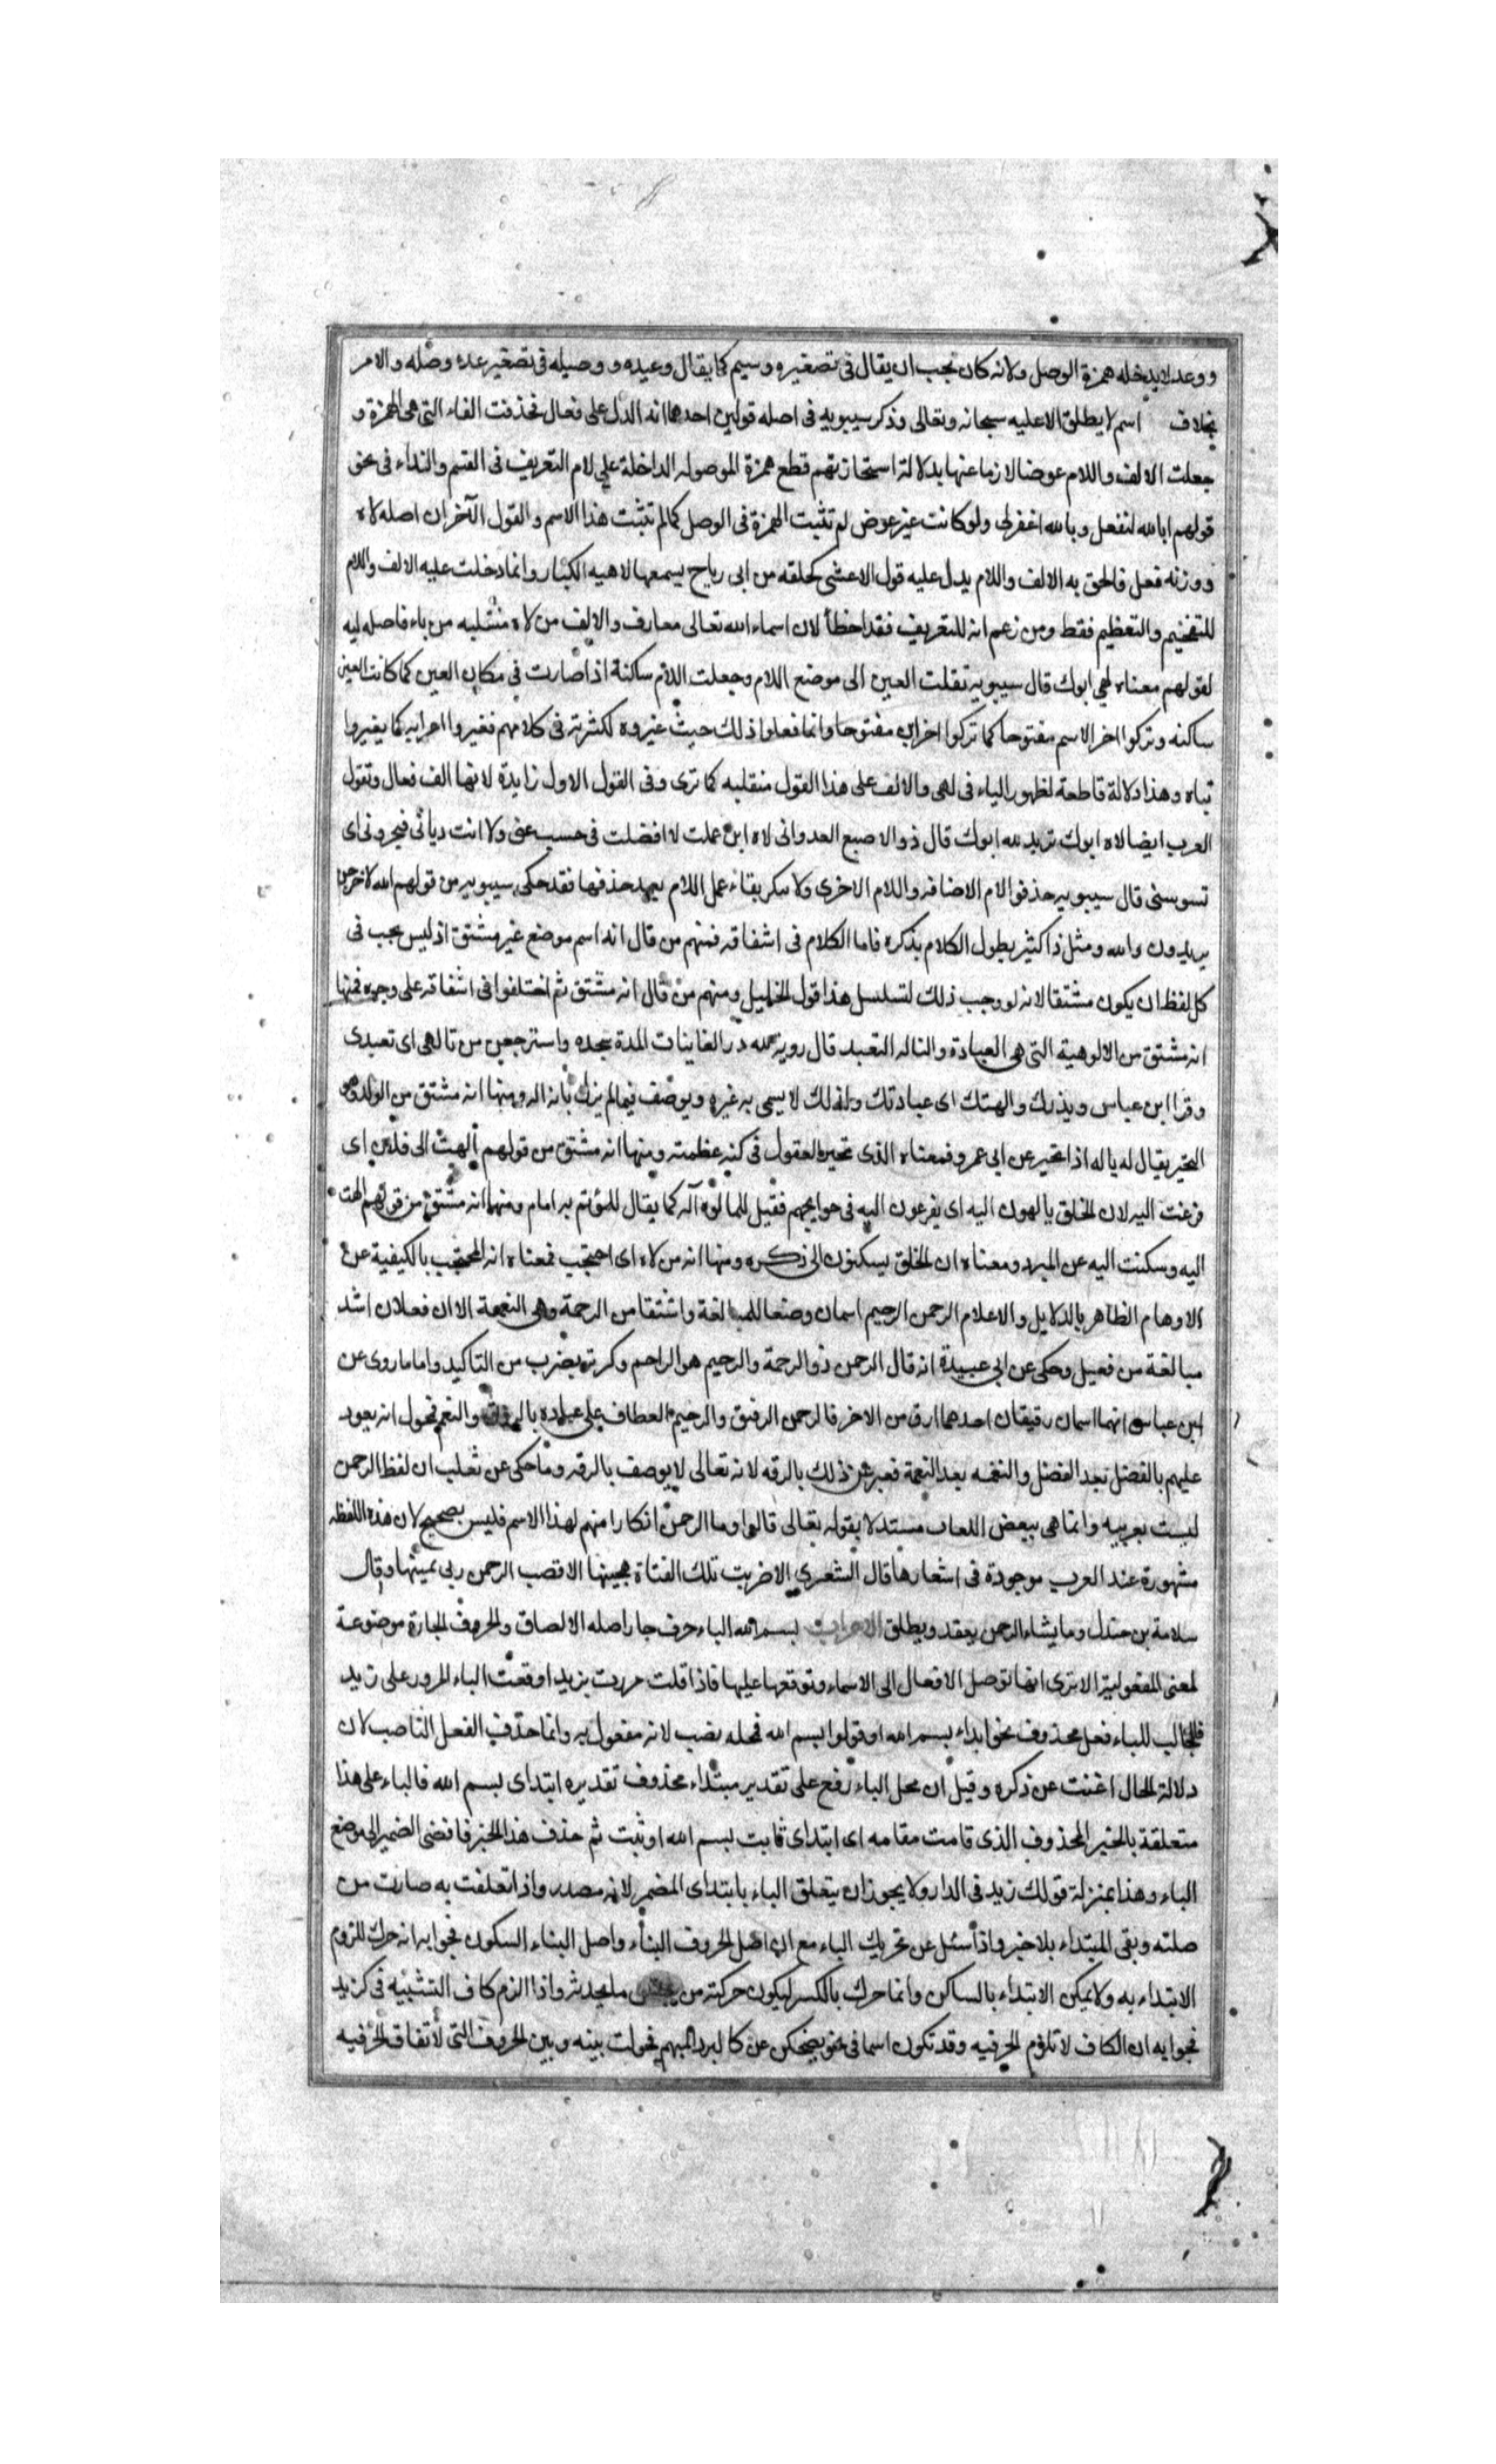 ووعد لا يدخله همزة الوصل ولانه كان يجب ان يقال فى تصغيره وسيم كما يقال وعيده و وصيله فى تصغير عده وصله والامر
بخلاف اسم لا يطلق الا عليه سبحانه وتعالى وذكر سيبويه فى اصله قولين احدهما انه الدل على فعال فحذفت الفاء التى هى الهمزة و
جعلت الالف واللام عوضا لازما عنها بدلالة استجازتهم قطع همزة الموصوله الداخلة على لام التعريف فى القسم والنداء فى نحو
قولهم ابالله لتفعل وبالله اغفرلى ولو كانت غير عوض لم تثبت الهمزة فى الوصل كما لم تثبت هذا الاسم والقول الآخر ان اصله لاه
ووزنه فعل فالحق به الالف واللام يدل عليه قول الاعشى كحلقه من ابى رياح يسمعها لاهيه الكبار وانما دخلت عليه الالف واللام
للتفخيم والتعظيم فقط ومن زعم انه للتعريف فقد اخطأ لان اسماء الله تعالى معارف والالف من لاه منقلبه من ياء فاصله ليه
لقولهم معناه لهى ابوك قال سيبويه نقلت العين الى موضع اللام وجعلت اللام ساكنة اذا صارت فى مكان العين كما كانت العين
ساكنه وتركوا اخر الاسم مفتوحا كما تركوا اخر اين مفتوحا وانما فعلوا ذلك حيث غيروه لكثرته فى كلامهم فغيروا اعرابه كما يغيروا
بناه وهذا دلالة قاطعة لظهور الياء فى لهى والالف على هذا القول منقلبه كما ترى وفى القول الاول زايدة لانها الف فعال وتقول
العرب ايضا لاه ابوك تريد لله ابوك قال ذو الاصبع العدوانى لاه ابن عمك لا افضلت فى حسب عنى ولا انت ديانى فيجرونى اى
تسوسنى قال سيبويه حذفوا لام الاضافه واللام الاخرى ولا ينكر بقاء عمل اللام بعد حذفها فقد حكى سيبويه من قولهم الله لاخرجن
يريدون والله ومثل ذا كثير يطول الكلام بذكره فاما الكلام فى اشقاقه فمنهم من قال انه اسم موضع غير مشتق اذ ليس يجب فى
كل لفظ ان يكون مشتقا لانه لو وجب ذلك لتسلسل هذا قول الخليل ومنهم من قال انه مشتق ثم اختلفوا فى اشقاقه على وجوه فمنها
انه مشتق من الالوهية التى هى العبادة والتاله التعبد قال روبة لله در الغانيات المدة سجده واسترجعن من تالهى اى تعبدى
وقرا ابن عباس ويذرك والهتك اى عبادتك ولذلك لا يسمى به غيره ويوصف فيما لم يزل بانه اله ومنها انه مشتق من الوله وهو
التحير يقال اله ياله اذا تحير عن ابى عمرو فمعناه الذى تحير العقول فى كنه عظمته ومنها انه مشتق من قولهم الهت الى فلان اى
فزعت اليه لان الخلق يالهون اليه اى يفزعون اليه فى حوايجهم فقيل للمالوه آله كما يقال للمؤتم به امام ومنها انه مشتق من قولهم الهت
اليه وسكنت اليه عن المبرد ومعناه ان الخلق يسكنون الى ذكره ومنها انه من لاه اى احتجب فمعناه انه المحتجب بالكيفية عن
الاوهام الظاهر بالدلايل والاعلام الرحمن الرحيم اسمان وضعا للمبالغة واشتقا من الرحمة وهى النعمة الا ان فعلان اشد
مبالغة من فعيل وحكى عن ابى عبيدة انه قال الرحمن ذو الرحمة والرحيم هو الراحم وكرر لضرب من التاكيد واما ما روى عن
ابن عباس انهما اسمان رقيقان احدهما ارق من الاخر فالرحمن الرقيق والرحيم العطاف على عباده بالرزق والنعم فمحول انه يعود
عليهم بالفضل بعد الفضل والنعمه بعد النعمة فعبر عن ذلك بالرقه لانه تعالى لا يوصف بالرقه وما حكى عن ثعلب ان لفظ الرحمن
ليست بعربيه وانما هى ببعض اللغات مستدلا بقوله تعالى قالوا وما الرحمن انكارا منهم لهذا الاسم فليس بصحيح لان هذه اللفظه
مشهورة عند العرب موجودة فى اشعارها قال الشنفرى الا ضربت تلك الفتاة هجينها الا قضب الرحمن ربى يمينها وقال
سلامة بن جندل وما يشاء الرحمن يعقد ويطلق الاعراب بسم الله الباء حرف جار اصله الالصاق والحروف الجارة موضوعة
لمعنى المفعولية الا ترى انها توصل الافعال الى الاسماء وتوقعها عليها فاذا قلت مررت بزيد اوقعت الباء المرور على زيد
فالجالب للباء فعل محذوف نحو ابداء بسم الله او قولوا بسم الله فمحله نصب لانه مفعول به وانما حذف الفعل الناصب لان
دلالة الحال اغنت عن ذكره وقيل ان محل الباء رفع على تقدير مبتداء محذوف تقديره ابتداى بسم الله فالباء على هذا
متعلقة بالخبر المحذوف الذى قامت مقامه اى ابتداى ثابت بسم الله او ثبت ثم حذف هذا الخبر فافضى الضمير الى موضع
الباء وهذا بمنزلة قولك زيد فى الدار ولا يجوز ان يتعلق الباء بابتداى المضمر لانه مصدر واذا تعلقت به صارت من
صلته وبقى المبتداء بلا خبر واذا سئل عن تحريك الباء مع ان اصل الحروف البناء واصل البناء السكون فجوابه انه حرك للزوم
الابتداء به ولا يمكن الابتداء بالساكن وانما حرك بالكسر ليكون حركته من جنس ما يحدثه واذا الزم كاف التشبيه فى كزيد
فجوابه ان الكاف لا تلازم الحرفيه وقد تكون اسما فى نحو يضحكن عن كالبرد المبهم فحولت بينه وبين الحروف التى لا تفاق الحرفيه